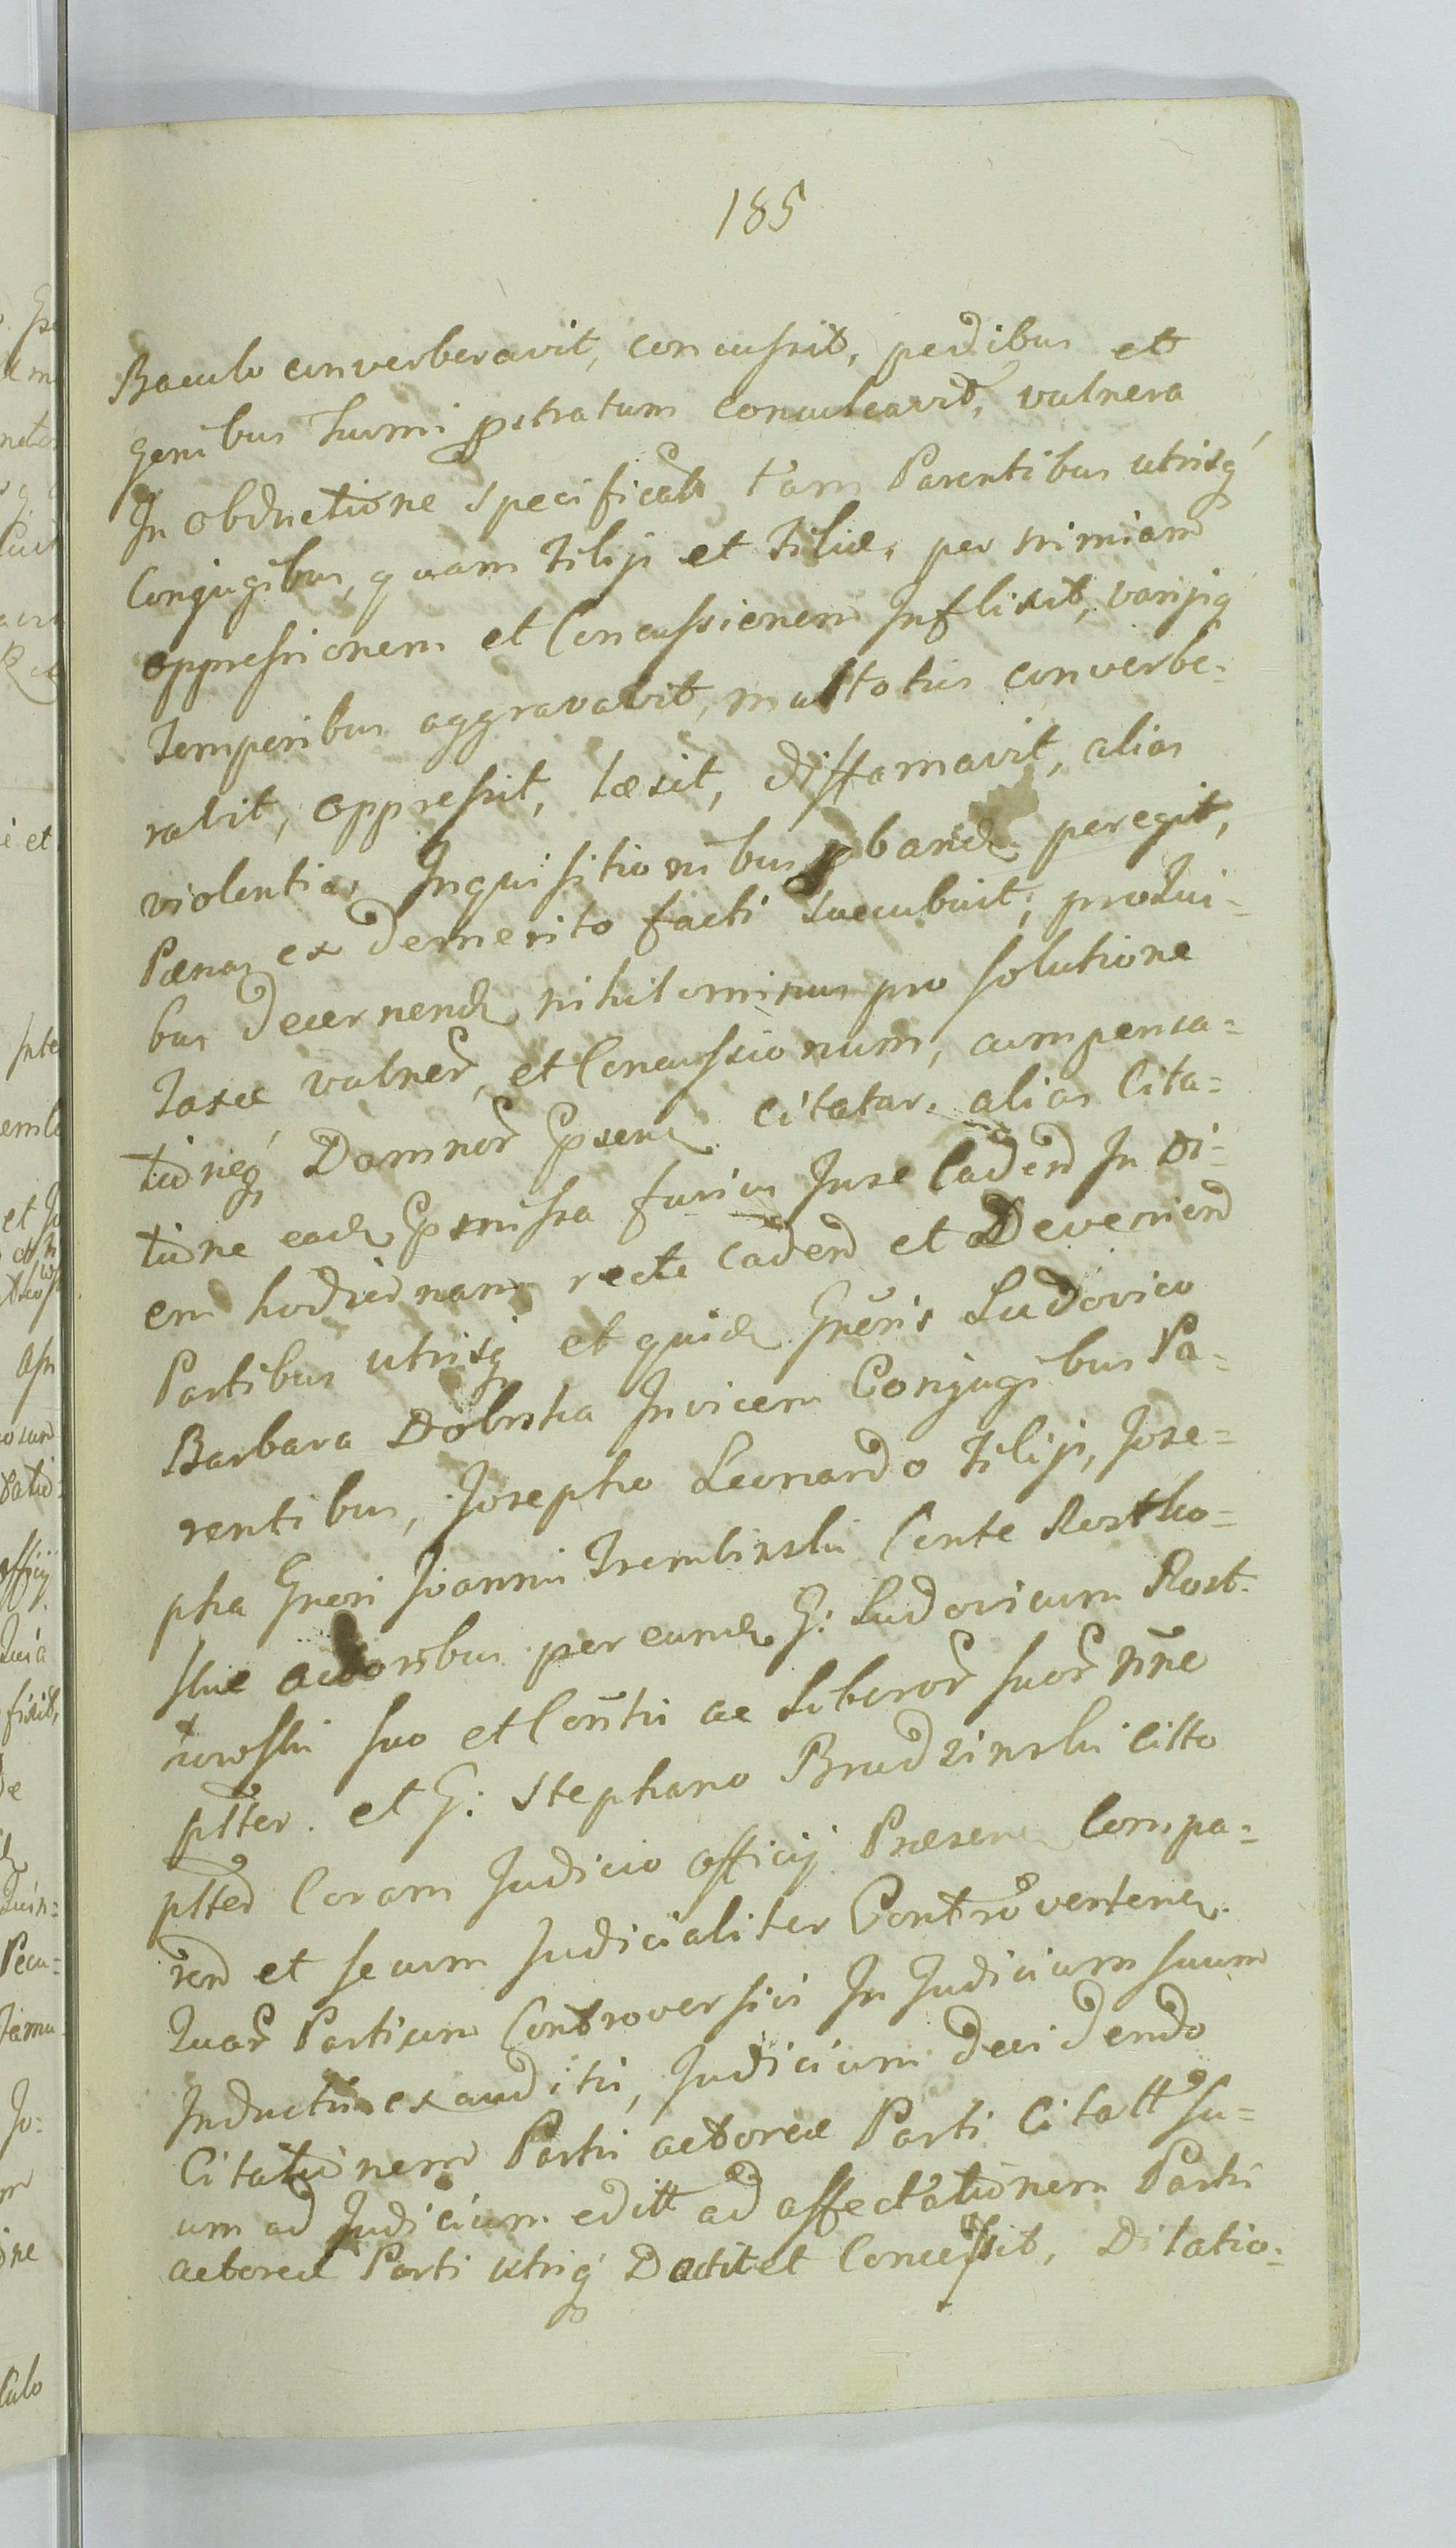 185
Baculo converberavit, concussit, pedibus et
genibus humi pstratum conculcavit, vulnera
In obductione specificata tam Parentibus utrisq
Conjugibus, quam Filij et Filiæ, per nimiam
oppressionem et Concussionem Inflixit, varijsq
Temporibus aggravavit, multoties converbe-
ravit, oppressit, læsit, diffamavit, alias
violentias Inquisitionibus pband peregit,
Pænas ex demerito facti succubuit, pro qui-
bus decernend nihilominus pro solutione
Taxæ vulner, et Concussionum, compensa-
tioneq Damnor Epsens citatar. alias Cita-
tione ead pmissa fusius Juxe Cadend In Di-
em hodiernam recte cadend et Deveniend
Partibus utrisq et quid Gneris Ludovico
Barbara Dobrska Invicem Conjugibus Pa-
rentibus, Josepho Leonardo Filijs, Jose-
pha Gneri Joannis Trembinski Conte Rostko-
skie actoribus per eund G: Ludovicum Rost-
kowski suo et Contis ac Liberor suor nne
ptter. et G: Stephano Brudzinski citto
ptted Coram Judicio officij Præsen Compa-
ren et secum Judicialiter Controverten.
Quar Partium Controversijs In Judicium suum
Inductis exauditis, Judicium decidendo
Citationem Partis actoreæ Parti Citatt su-
um ad Judicium editt ad affectationem Partis
actoreæ Parti utriq Dedit et Concessit, Dilatio-